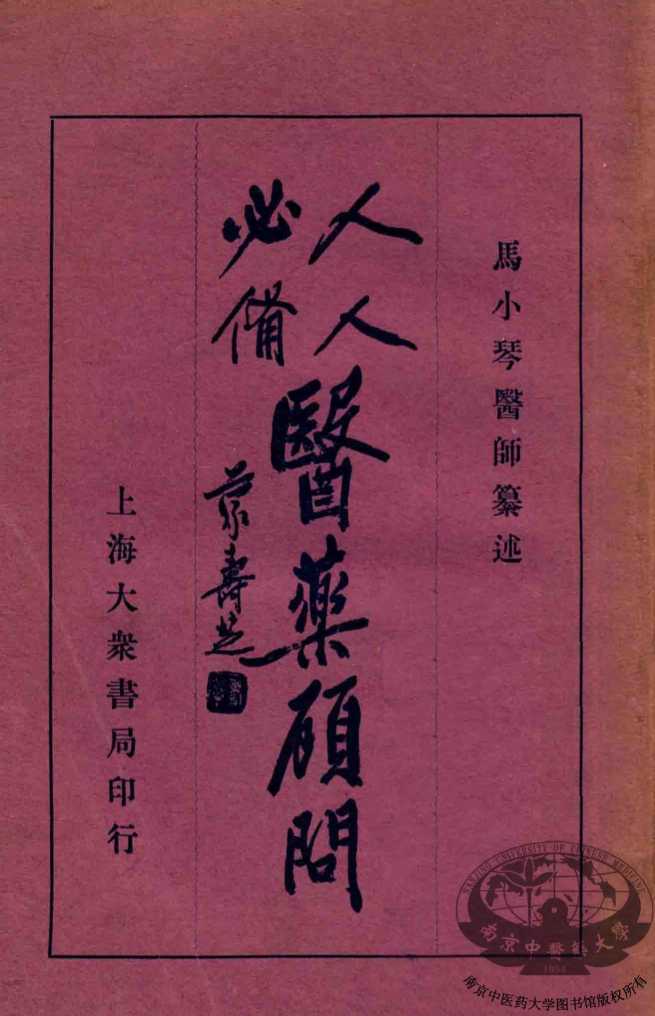 馬小琴醫師纂述
人人
必備
醫藥顧問
壽芝
上海大衆書局印行
NANJING UNIVERSITY OF CHINESE MEDICINE
南京中醫藥大學
1954
南京中医药大学图书馆版权所有